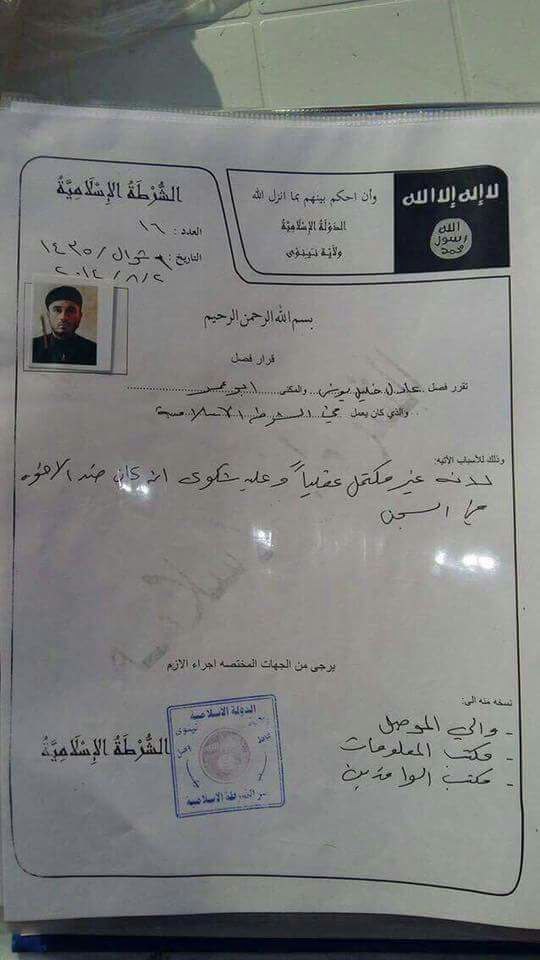 الشرطة الإسلامية
العدد: ١٦
التاريخ: ٦ شوال / ١٤٣٥
٢٠١٤/٨/٢
وأن احكم بينهم بما انزل الله
الدولة الإسلامية
ولاية نينوى
لا إله إلا الله
الله
رسول
محمد
بسم الله الرحمن الرحيم
قرار فصل
تقرر فصل عادل خليل يونس والمكنى ابو عمر
والذي كان يعمل في الشرطة الاسلامية
وذلك للأسباب الآتيه:
لانه غير مكتمل عقلياً وعليه شكوى انه كان ضد الاخوه
في السجن
يرجى من الجهات المختصه اجراء الازم
نسخه منه الى:
- والي الموصل
- مكتب المعلومات
- مكتب الوافدين
الشرطة الإسلامية
الدولة الاسلامية
نينوى
الشرطة الاسلامية